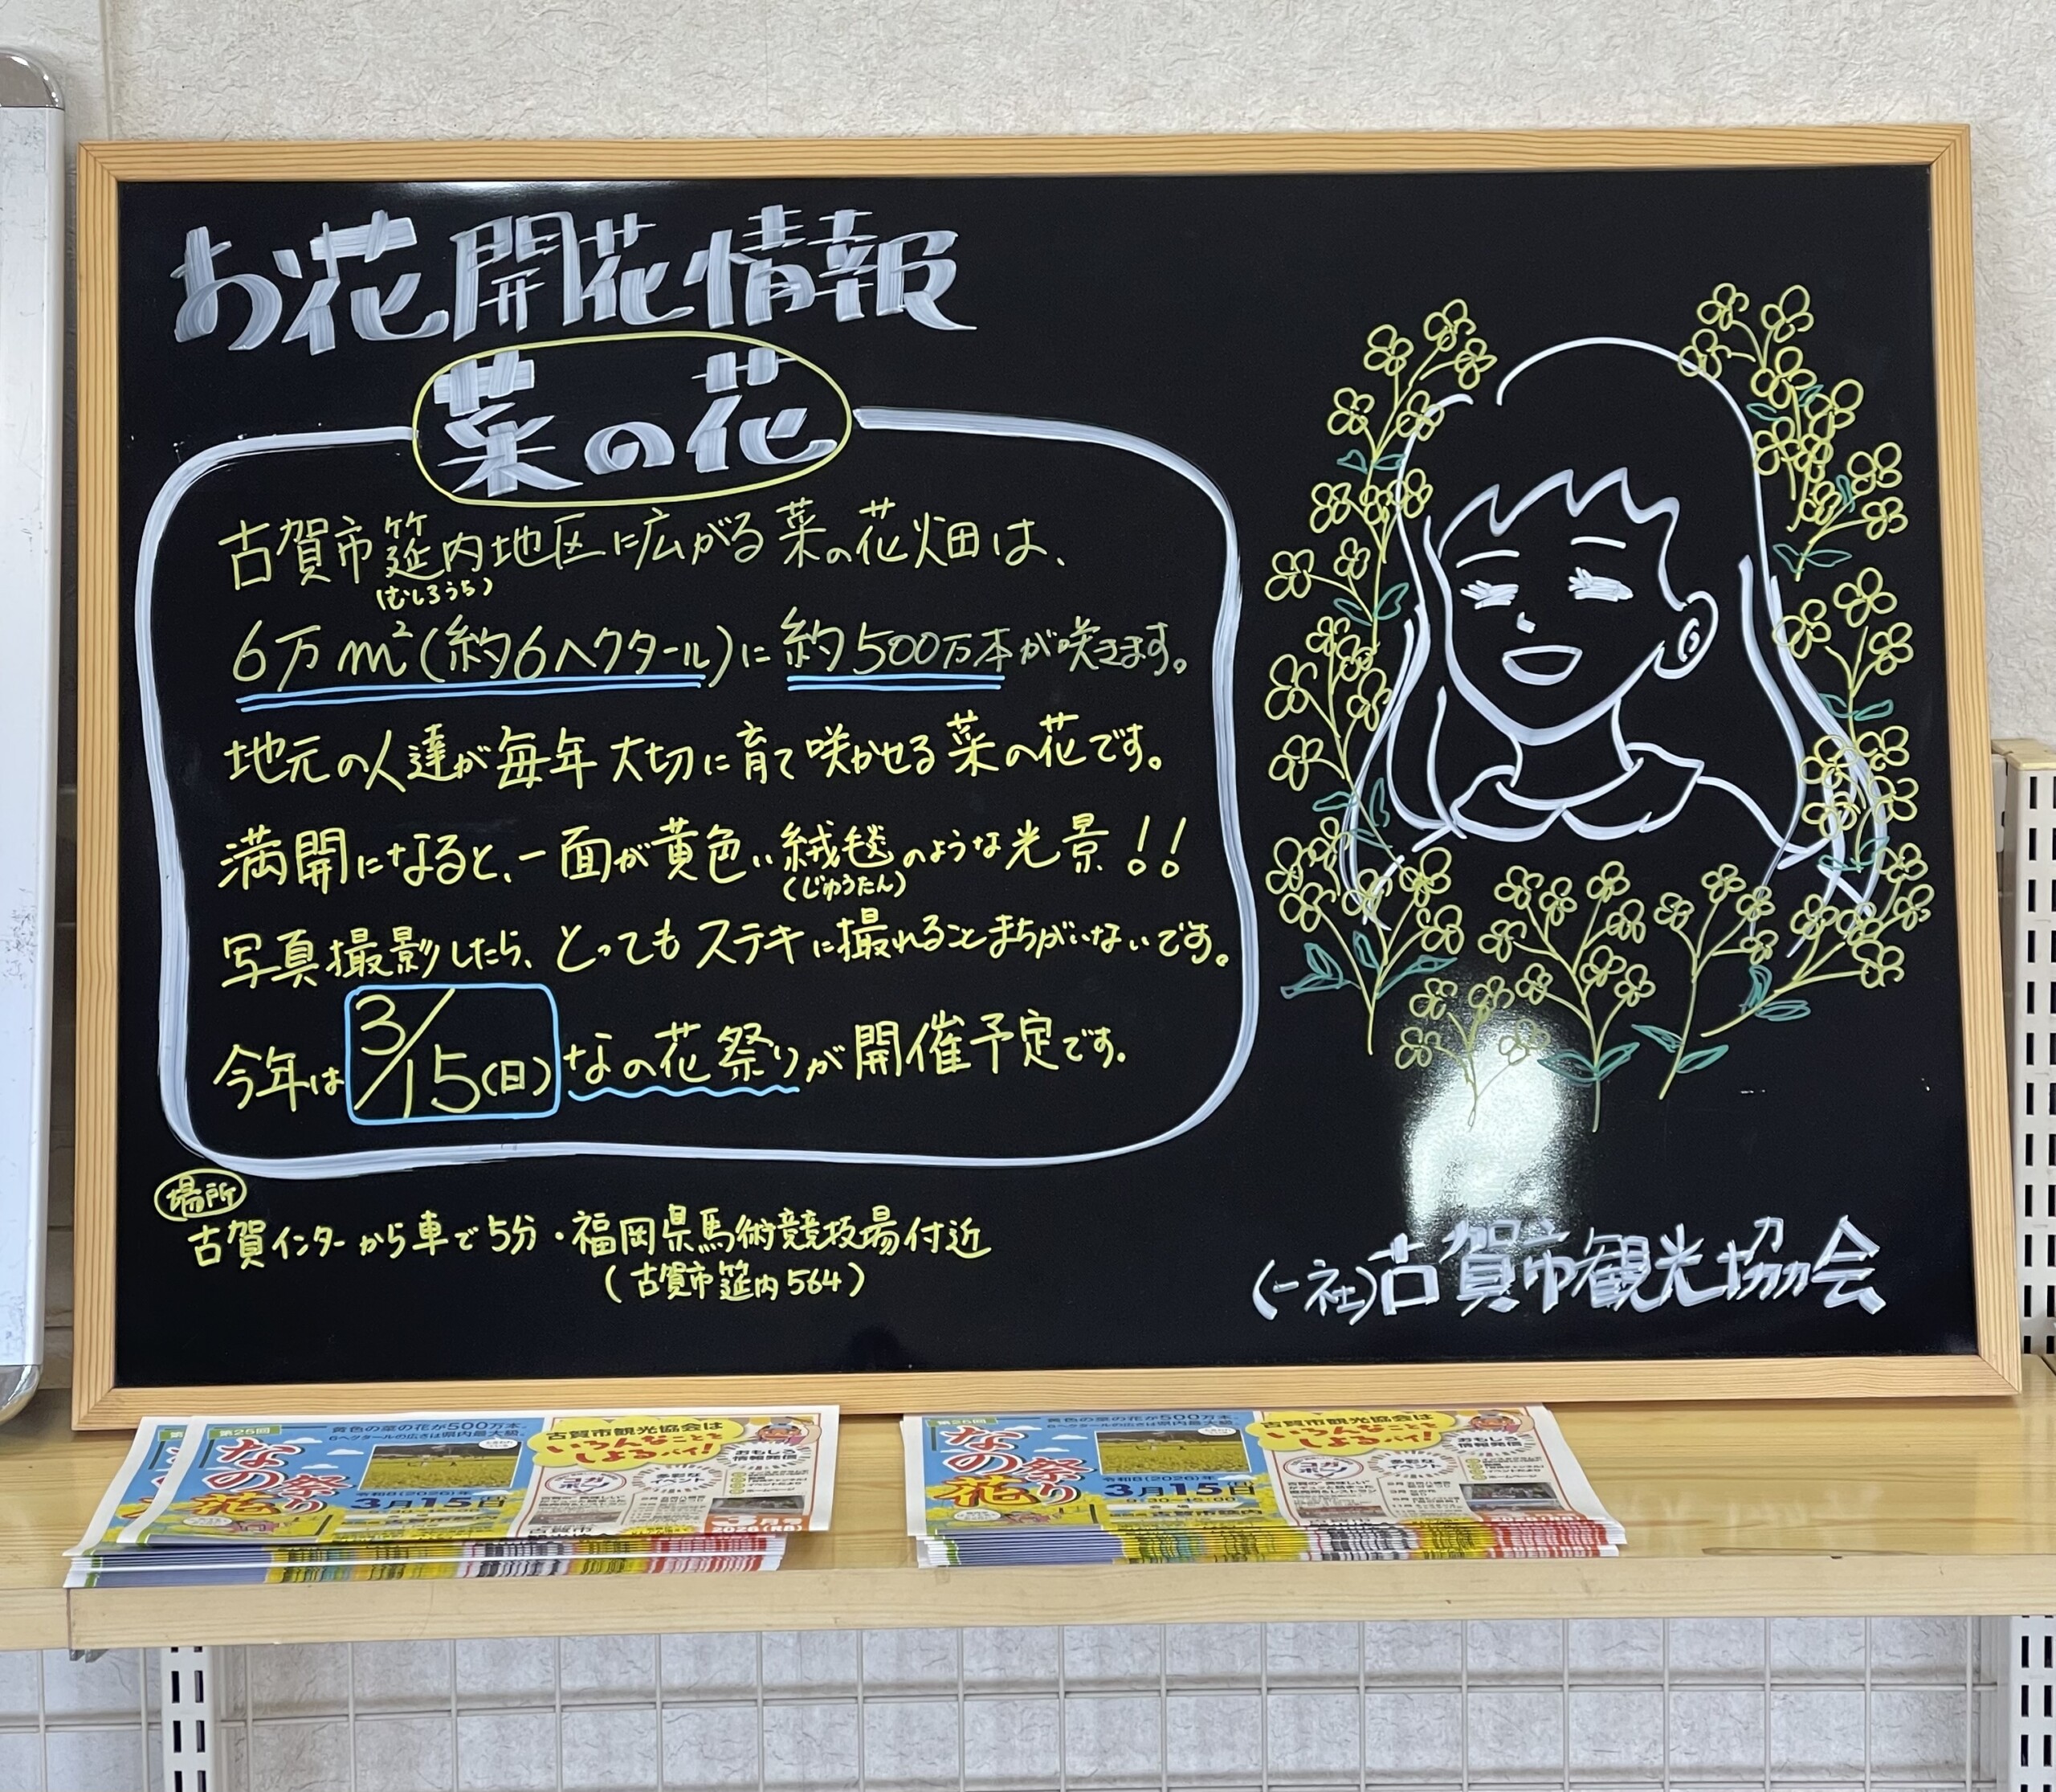 お花開花情報
菜の花
古賀市筵内地区に広がる菜の花畑は、
(むしろうち)
6万m²(約6ヘクタール)に約500万本が咲きます。
地元の人達が毎年大切に育て咲かせる菜の花です。
満開になると、一面が黄色い絨毯のような光景!!
(じゅうたん)
写真撮影したら、とってもステキに撮れることまちがいないです。
今年は3/15(日)なの花祭りが開催予定です。
場所
古賀インターから車で5分・福岡県馬術競技場付近
(古賀市筵内564)
(一社)古賀市観光協会
第25回
黄色の菜の花が500万本。
6ヘクタールの広さは県内最大級。
なの花祭り
3月15日
古賀市観光協会は
いろんなことを
しよるバイ!
おもしろ
情報発信
多彩な
イベント
3月号
2026(R8)
第25回
黄色の菜の花が500万本。
6ヘクタールの広さは県内最大級。
なの花祭り
令和8(2026)年
3月15日
9:30-15:00
会場
古賀市筵内
古賀市観光協会は
いろんなことを
しよるバイ!
おもしろ
情報発信
多彩な
イベント